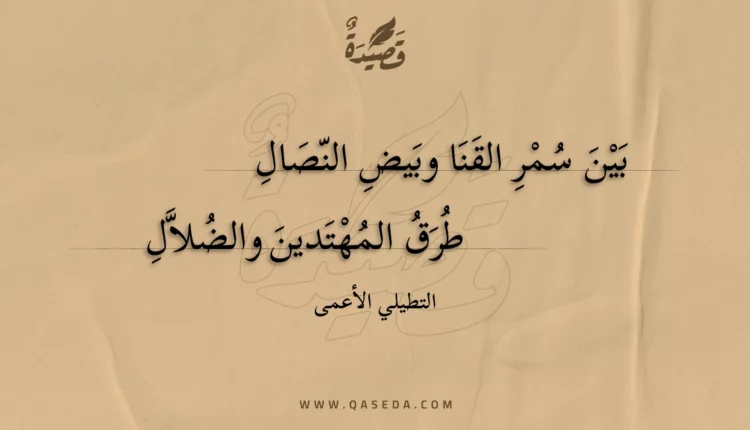 قَصِيْدَةٌ
بَيْنَ سُمْرِ القَنَا وبَيضِ النّصَالِ
طُرَقُ المُهْتَدينَ والضُلاَّلِ
التطيلي الأعمى
WWW.QASEDA.COM